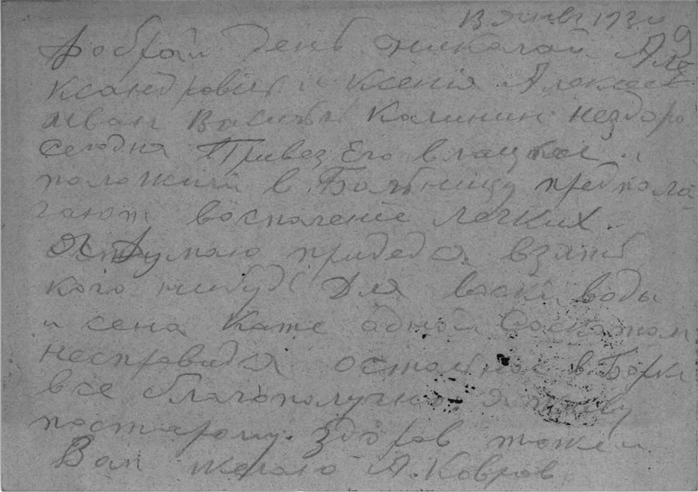 13 янв 193
Добрый день Николай Але
ксандрович и Ксенія Алексеев
Иван Васильич Калинин нездоров
сегодня Привез Его в
положили в Больницу предпола
гают воспаление легких.
Я думаю придется взять
кого нибудь Для воски воды
и сена Кате одной
несправится остальное в Борки
все благополучно Я живу
постарому. Здоров тоже и
Вам желаю А. Ковров